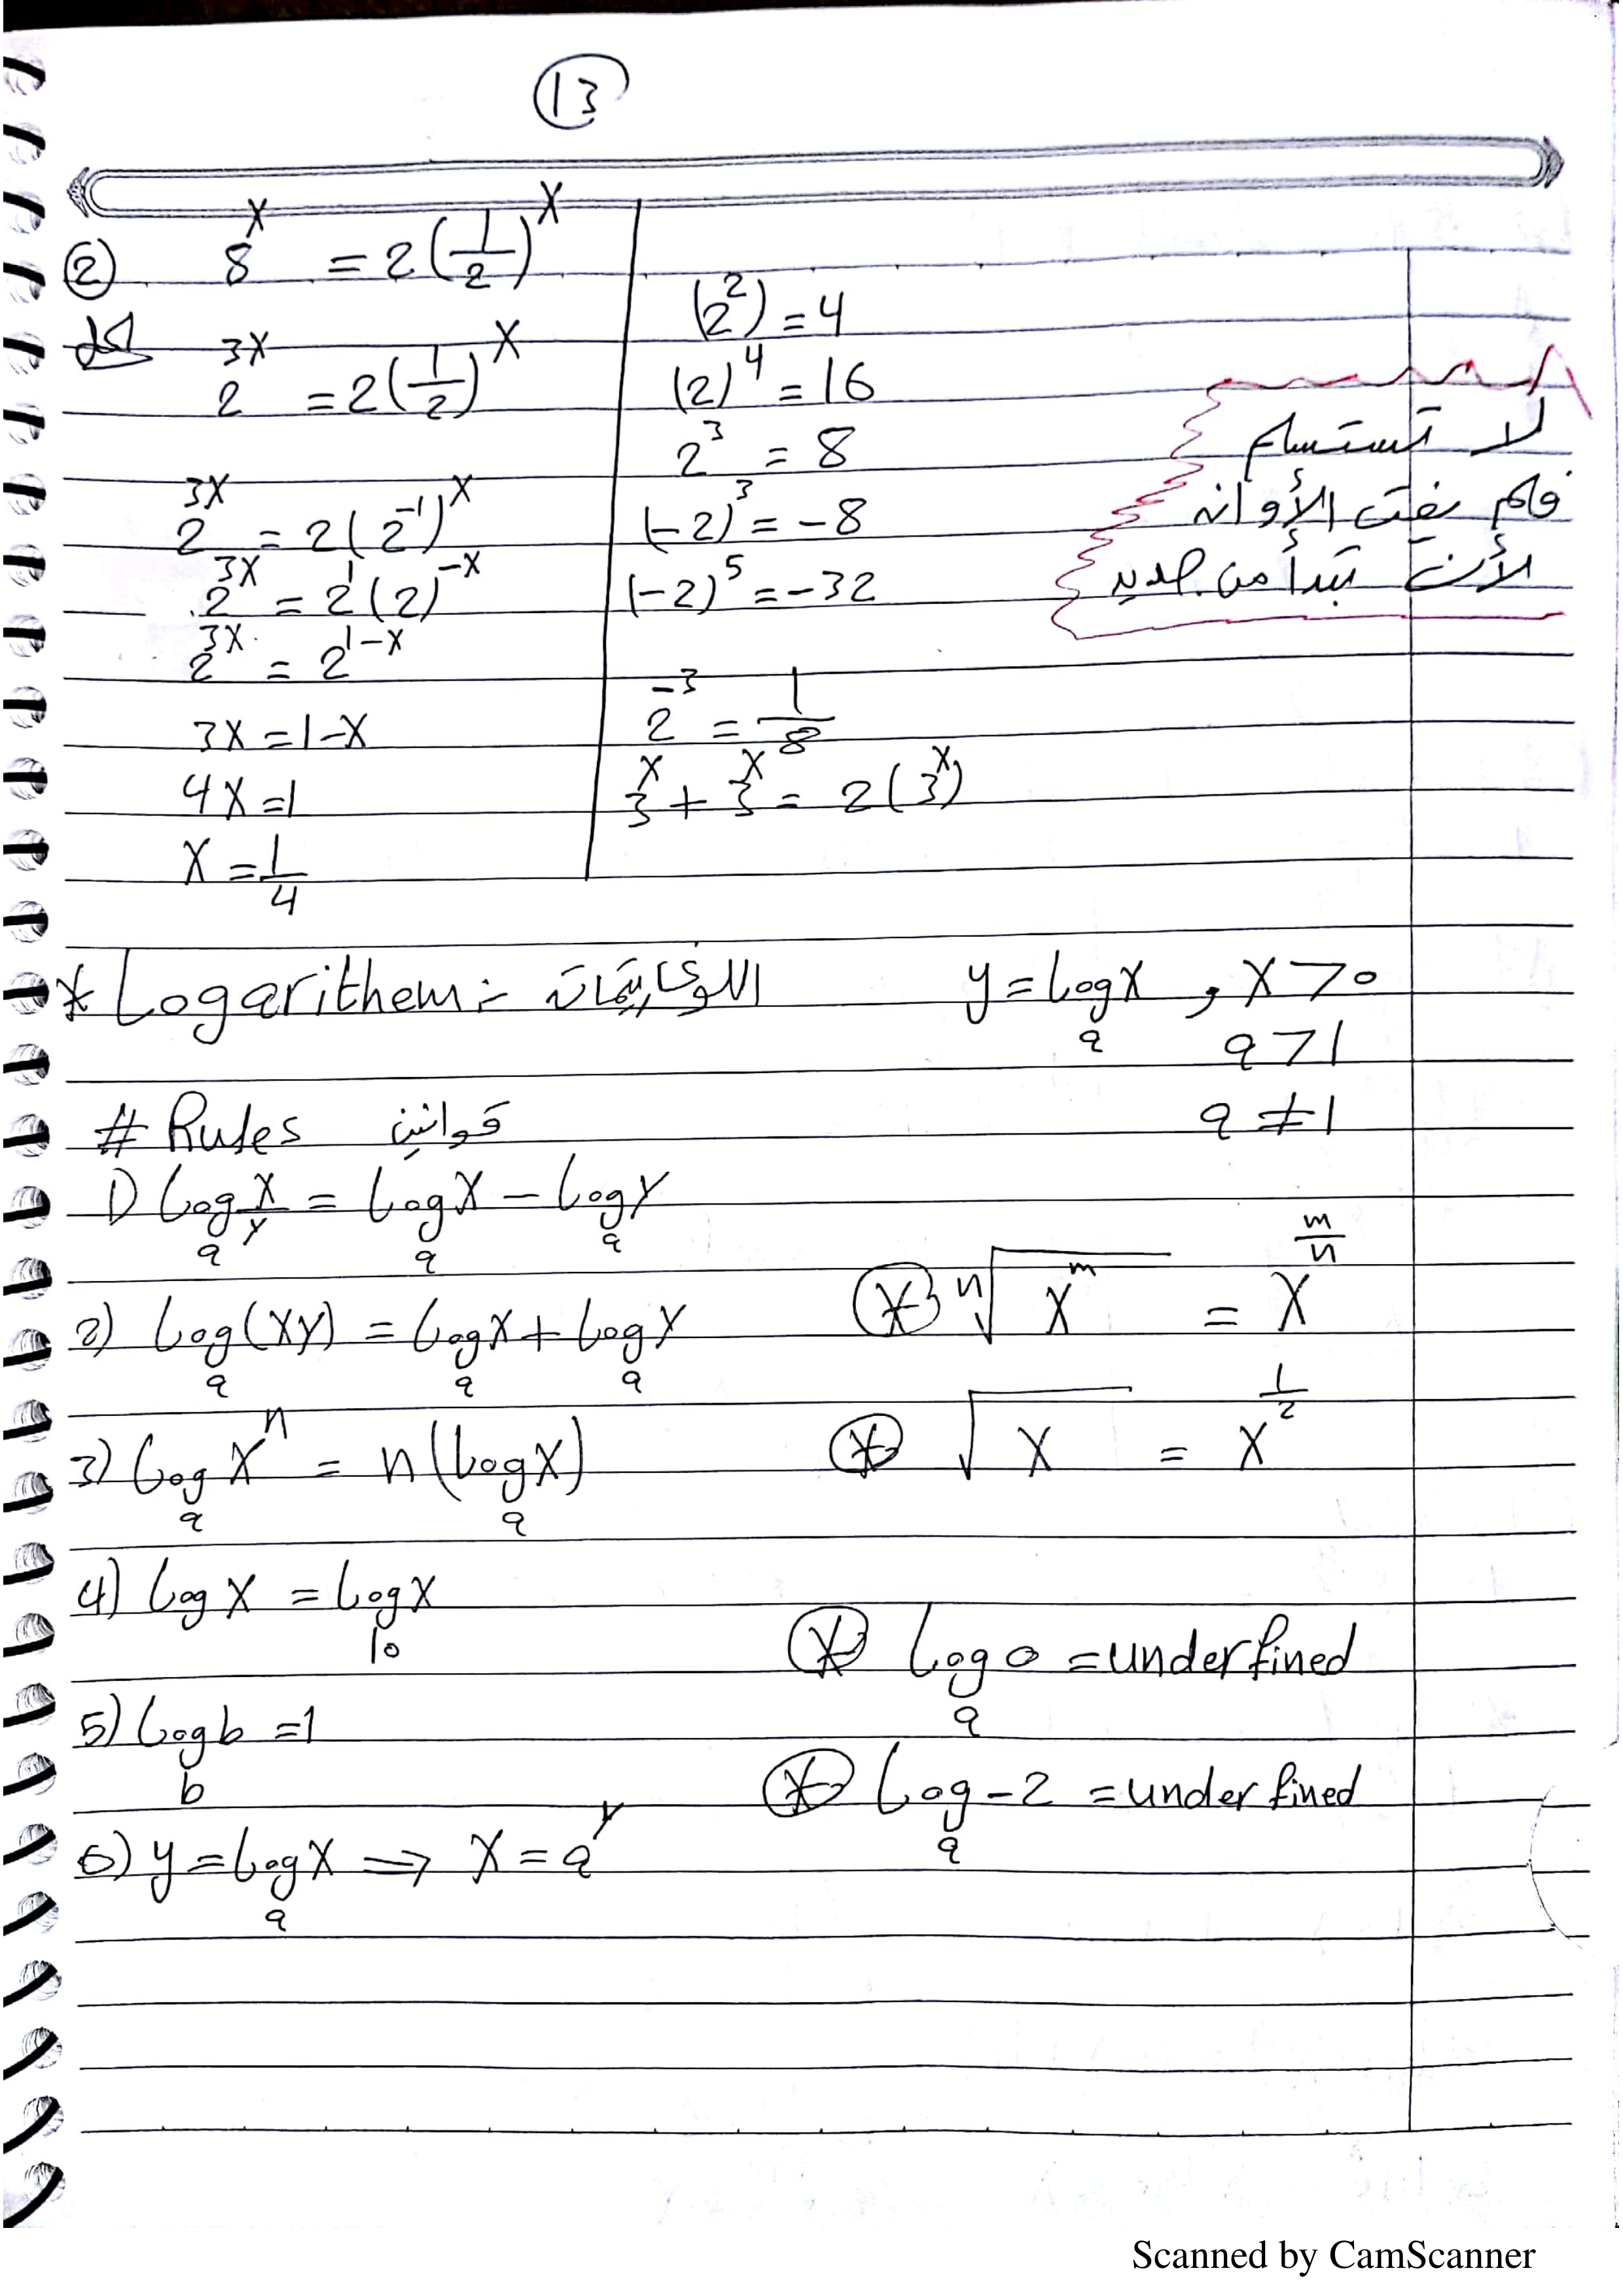 13
② 8^x = 2(1/2)^x
الحل
2^3x = 2(1/2)^x
2^3x = 2(2^-1)^x
2^3x = 2^1(2)^-x
2^3x = 2^1-x
3x = 1-x
4x = 1
x = 1/4
(2^2) = 4
(2)^4 = 16
2^3 = 8
(-2)^3 = -8
(-2)^5 = -32
2^-3 = 1/8
3^x + 3^x = 2(3^x)
لا تستسلم
فلم يفت الأوان
لأن تبدأ من جديد
* Logarithem :- اللوغاريتمات
y = log_a x , x > 0
a > 1
a ≠ 1
# Rules قوانين
1) log_a x/y = log_a x - log_a y
2) log_a (xy) = log_a x + log_a y
3) log_a x^n = n(log_a x)
4) log x = log_10 x
5) log_b b = 1
6) y = log_a x ⇒ x = a^y
* ⁿ√x^m = x^m/n
* √x = x^1/2
* log_a 0 = underfined
* log_a -2 = underfined
Scanned by CamScanner